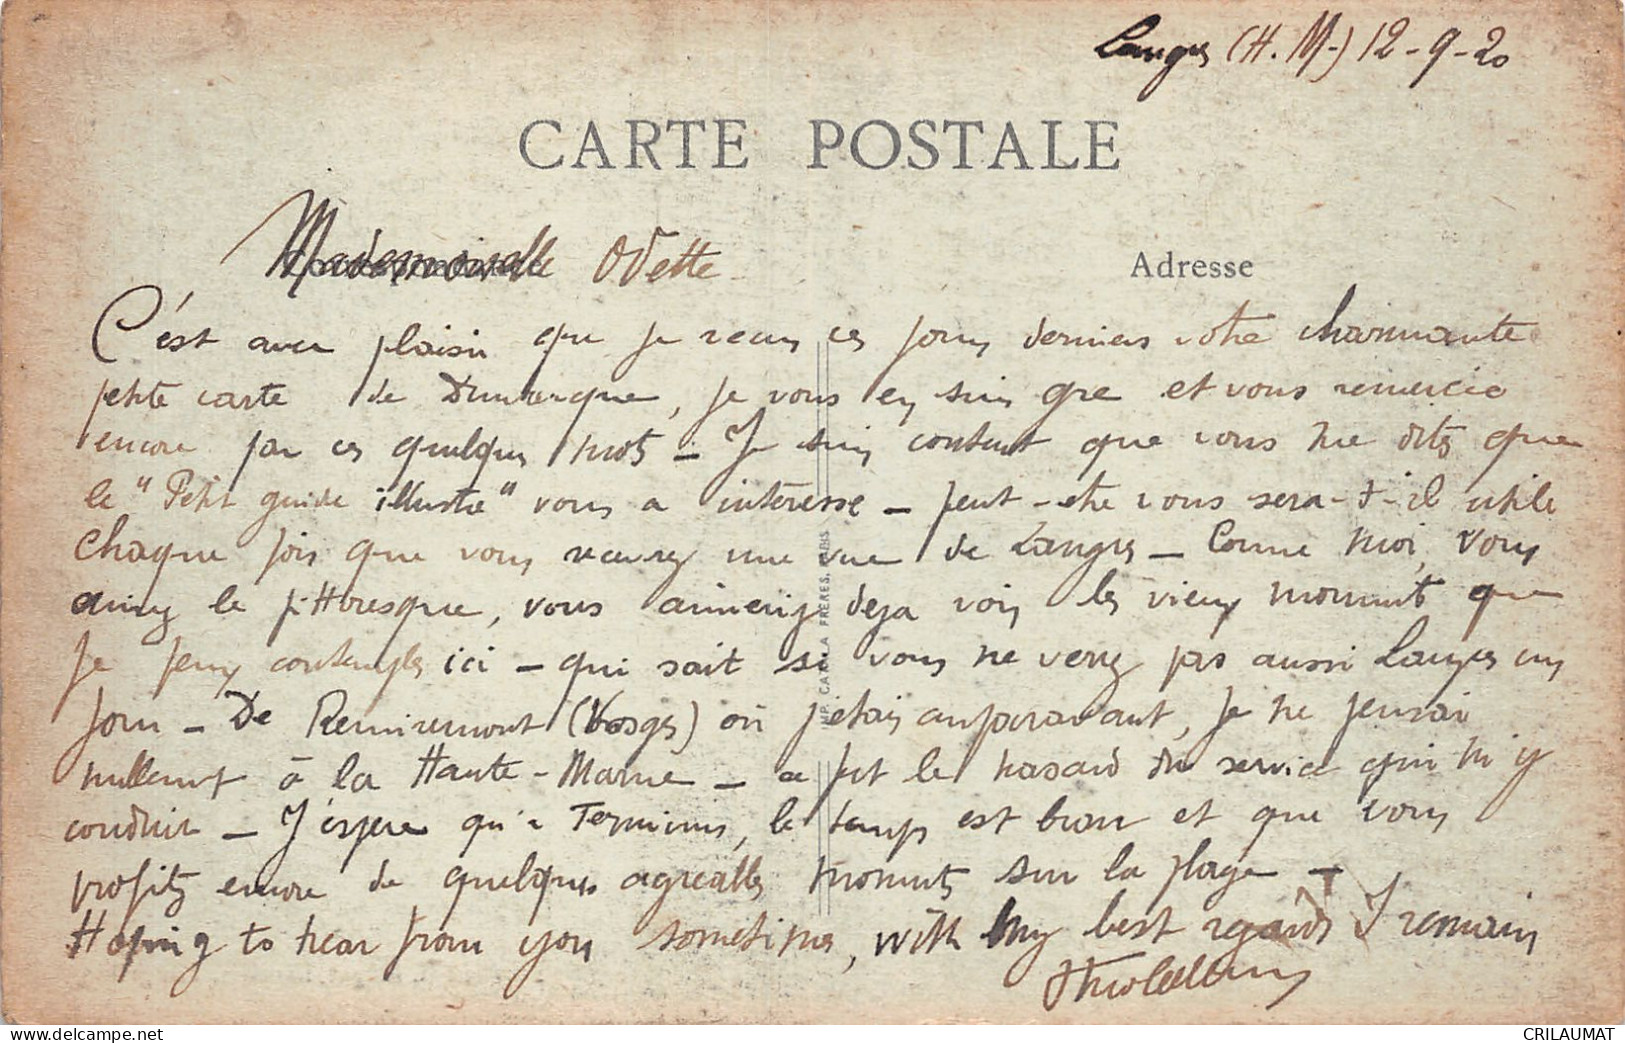 Langres (H. M-) 12-9-20
CARTE POSTALE
Mademoiselle Odette
Adresse
C'est avec plaisir que je reçus ces jours derniers votre charmante
petite carte de, je vous en suis gré et vous remercie
encore par ces quelques mots - Je suis content que vous me dites que
le "Petit guide illustré" vous a intéressé - peut-être vous sera-t-il utile
chaque fois que vous recevrez une vue de Langres - Comme moi, vous
aimez le pittoresque, vous aimeriez déjà voir les vieux monuments que
je peux contempler ici - qui sait si vous ne verrez pas aussi Langres un
jour - De Remiremont (Vosges) où j'étais auparavant, je ne pensais
nullement à la Haute-Marne - ce fut le hasard du service qui m'y
conduit - J'espère qu'à Terminus, le temps est beau et que vous
profitez encore de quelques agréables moments sur la plage -
Hoping to hear from you sometimes, with my best regards I remain
IMP. CATALA FRERES, PARIS
delcampe.net
CRILAUMAT